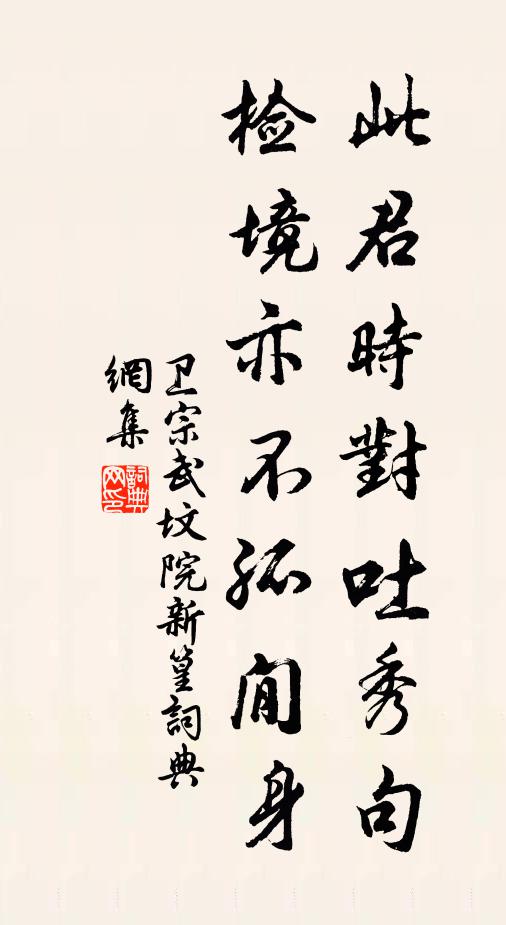 此君時對吐秀句
检境亦不孤閒身
卫宗武坟院新篁詞典
網集
詞典网印